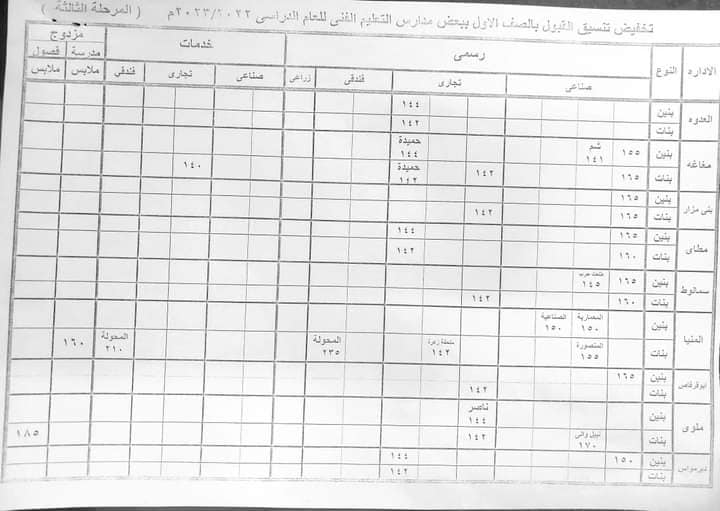 تخفيض تنسيق القبول بالصف الاول ببعض مدارس التعليم الفنى للعام الدراسى ٢٠٢٣/٢٠٢٢م ( المرحلة الثالثة )
الاداره النوع رسمى خدمات مزدوج
صناعى تجارى فندقى زراعى صناعى تجارى فندقي مدرسة ملابس فصول ملابس
العدوه بنين ١٤٤
بنات ١٤٢
مغاغه بنين ١٥٥ شم ١٤١ حميدة ١٤٤
بنات ١٦٥ ١٤٢ حميدة ١٤٢ ١٤٠
بنى مزار بنين ١٦٥
بنات ١٦٥ ١٤٢
مطاى بنين ١٦٥ ١٤٤
بنات ١٦٠ ١٤٢
سمالوط بنين ١٦٥ ١٤٥
بنات ١٦٠ ١٤٢
المنيا بنين المعمارية ١٥٠ الصناعية ١٥٠
بنات المتصورة ١٥٥ ١٤٢ المحولة ٢٣٥ المحولة ٢١٠ ١٦٠
ابوقرقاص بنين ١٦٥
بنات ١٤٢
ملوى بنين ناصر ١٤٤
بنات ١٧٠ ١٤٢ ١٨٥
ديرمواس بنين ١٥٠ ١٤٤
بنات ١٤٢